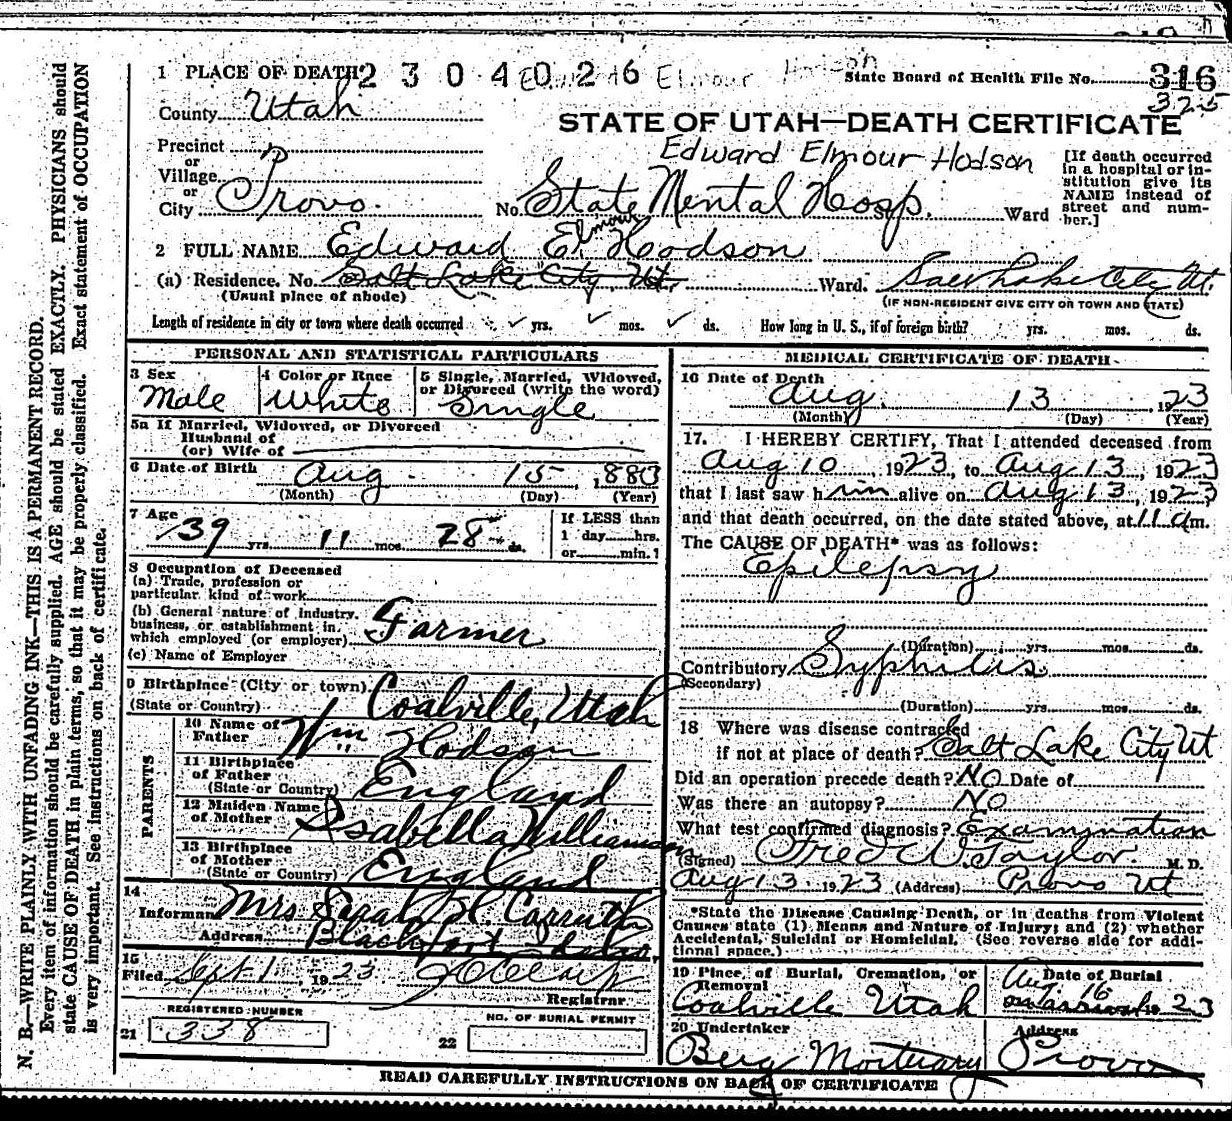 1 PLACE OF DEATH 2 3 0 4 0 2 6 Edward Elmour Hodson State Board of Health File No. 316
325
County Utah
STATE OF UTAH—DEATH CERTIFICATE
Edward Elmour Hodson
Precinct
or
Village
or
City Provo. No. State Mental Hosp. St. Ward
[If death occurred
in a hospital or in-
stitution give its
NAME instead of
street and num-
ber.]
2 FULL NAME Edward El Hodson
Elmour
(a) Residence. No. Salt Lake City, Ut. Ward. Salt Lake City Ut.
(Usual place of abode) (IF NON-RESIDENT GIVE CITY OR TOWN AND STATE)
Length of residence in city or town where death occurred yrs. mos. ds. How long in U. S., if of foreign birth? yrs. mos. ds.
PERSONAL AND STATISTICAL PARTICULARS
3 Sex
Male
4 Color or Race
White
5 Single, Married, Widowed,
or Divorced (write the word)
Single
5a If Married, Widowed, or Divorced
Husband of
(or) Wife of
6 Date of Birth Aug. 15, 1883
(Month) (Day) (Year)
7 Age
39 yrs. 11 mos. 28 ds.
If LESS than
1 day hrs.
or min.?
8 Occupation of Deceased
(a) Trade, profession or
particular kind of work
(b) General nature of industry,
business, or establishment in
which employed (or employer) Farmer
(c) Name of Employer
9 Birthplace (City or town) Coalville, Utah
(State or Country)
PARENTS
10 Name of
Father Wm Hodson
11 Birthplace
of Father
(State or Country) England
12 Maiden Name
of Mother Isabella Williamson
13 Birthplace
of Mother
(State or Country) England
14
Informant Mrs Sarah H. Carruth
Address Blackfoot Idaho.
15
Filed Sept 1, 1923
Registrar
REGISTERED NUMBER
21 338
NO. OF BURIAL PERMIT
22
MEDICAL CERTIFICATE OF DEATH
16 Date of Death
Aug. 13 1923
(Month) (Day) (Year)
17. I HEREBY CERTIFY, That I attended deceased from
Aug 10, 1923, to Aug 13, 1923
that I last saw him alive on Aug 13, 1923
and that death occurred, on the date stated above, at 11 a m.
The CAUSE OF DEATH* was as follows:
Epilepsy
(Duration) yrs. mos. ds.
Contributory Syphilis
(Secondary)
(Duration) yrs. mos. ds.
18 Where was disease contracted
if not at place of death? Salt Lake City Ut
Did an operation precede death? No Date of
Was there an autopsy? No
What test confirmed diagnosis? Examination
(Signed) Fred W. Taylor. M. D.
Aug 13 1923 (Address) Provo Ut
*State the Disease Causing Death, or in deaths from Violent
Causes state (1) Means and Nature of Injury; and (2) whether
Accidental, Suicidal or Homicidal. (See reverse side for addi-
tional space.)
19 Place of Burial, Cremation, or
Removal
Coalville Utah
Date of Burial
Aug. 16
1923
20 Undertaker
Berg Mortuary
Address
Provo
READ CAREFULLY INSTRUCTIONS ON BACK OF CERTIFICATE
N. B.—WRITE PLAINLY WITH UNFADING INK—THIS IS A PERMANENT RECORD.
Every item of information should be carefully supplied. AGE should be stated EXACTLY. PHYSICIANS should
state CAUSE OF DEATH in plain terms, so that it may be properly classified. Exact statement of OCCUPATION
is very important. See instructions on back of certificate.